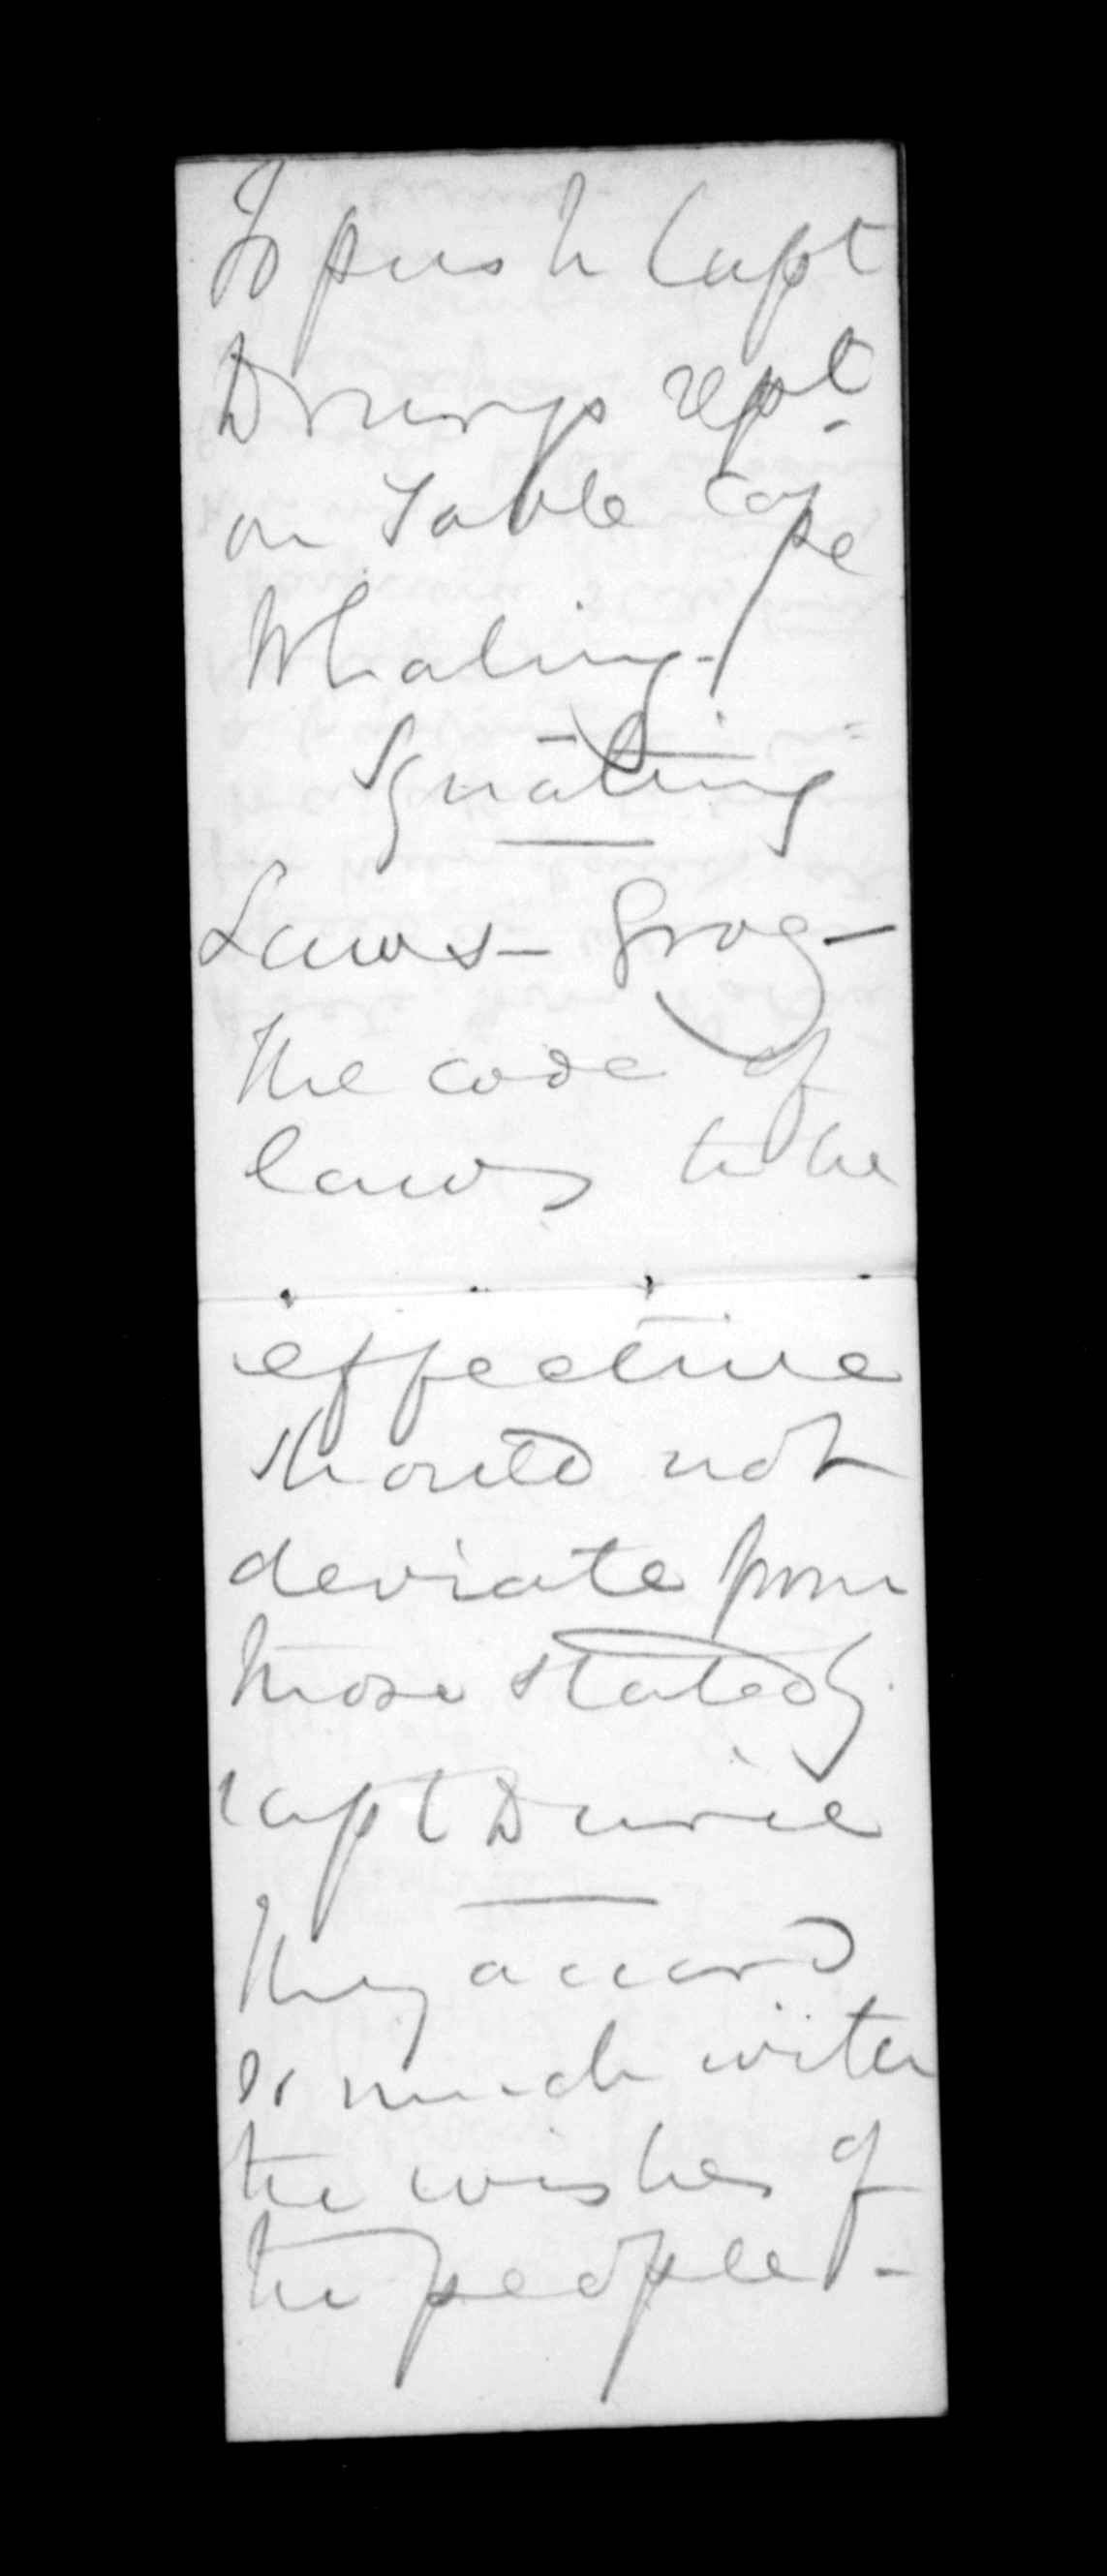 To push Capt
Drurys rept
on Table Cape
Whaling -
Squatting
Laws - Grog -
The code of
laws to be
effective
should not
deviate from
those stated by
Capt Durie
They accord
so much with
the wishes of
the people -